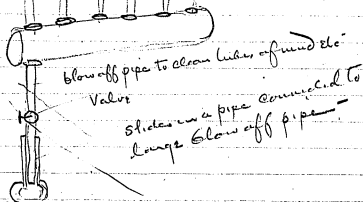 blow off pipe to clean tubes of mud etc
Valve
slides in a pipe connected to
large blow off pipe—